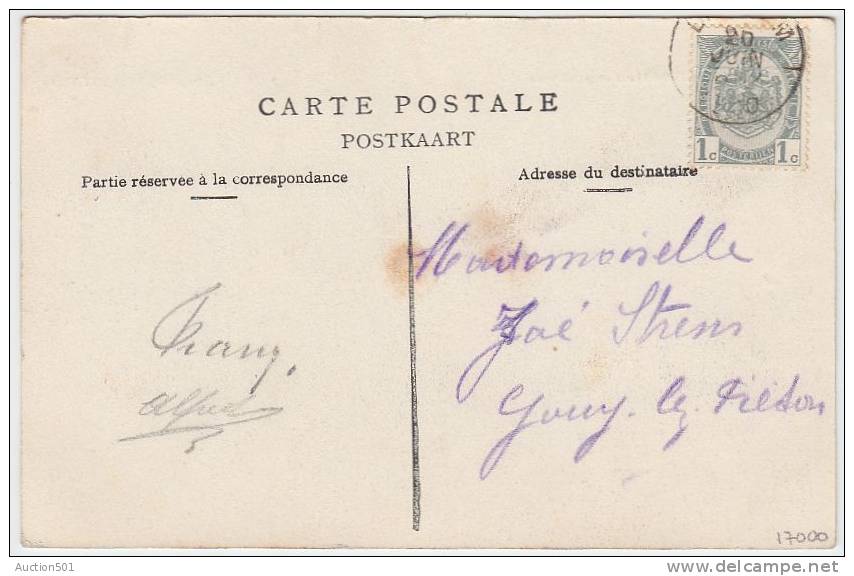 CARTE POSTALE
POSTKAART
Partie réservée à la correspondance
Adresse du destinataire
20
JUIN
1c 1c
POSTERIJEN
Mademoiselle
Zoé Strens
Gouy-lez-Piéton
Alfred
17000
Auction501
www.delcampe.net